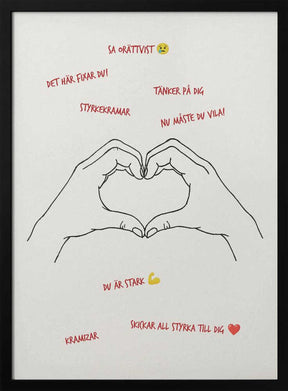 SA ORÄTTVIST 😢
DET HÄR FIXAR DU!
TÄNKER PÅ DIG
STYRKEKRAMAR
NU MÅSTE DU VILA!
DU ÄR STARK 💪
SKICKAR ALL STYRKA TILL DIG ❤️
KRAMIZAR